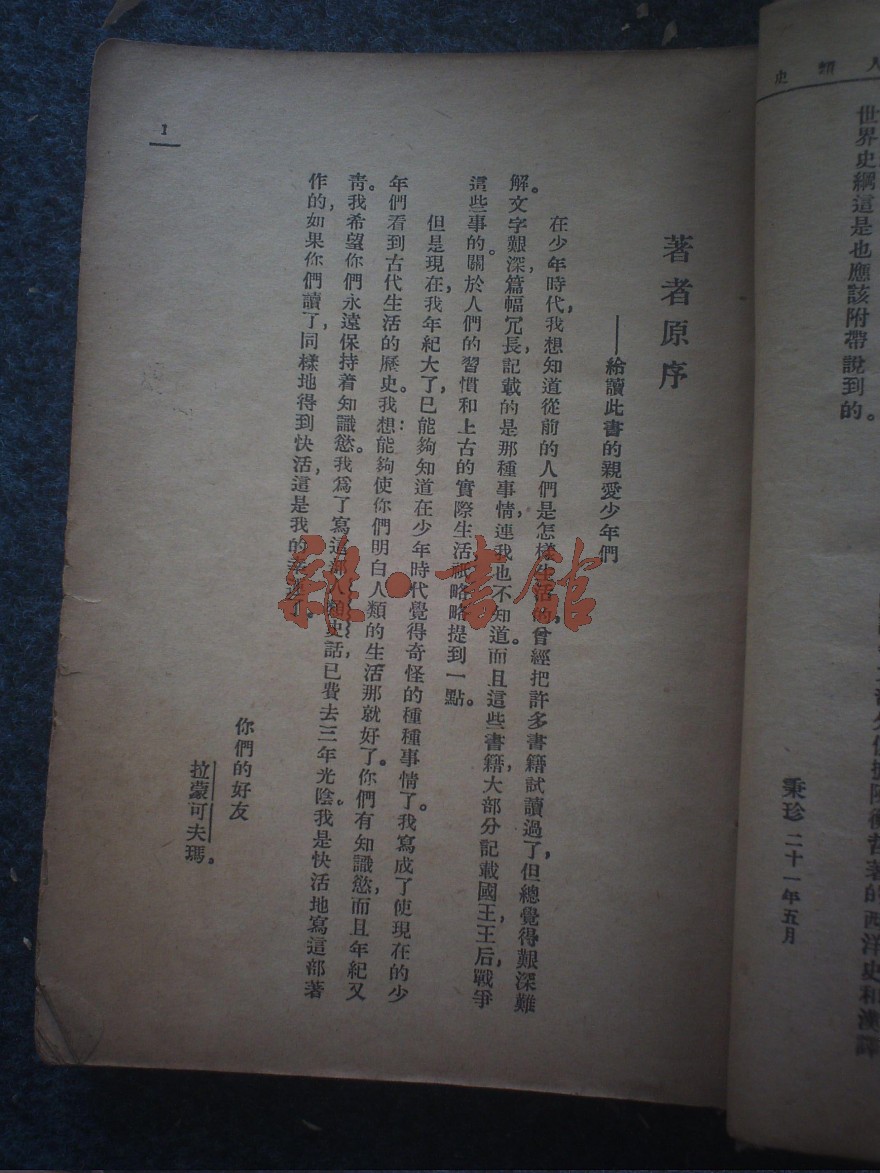 人類史
世界史綱這是也應該附帶說到的。
秉珍 二十一年五月
著者原序
——給讀此書的親愛少年們
在少年時代，我想知道從前的人們是怎樣生活的，曾經把許多書籍試讀過了，但總覺得艱深難
解。文字艱深，篇幅冗長，記載的是那種事情，連我也不知道。而且這些書籍，大部分記載國王，王后，戰爭
這些事的。關於人們的習慣和上古的實際生活祇略略提到一點。
但是現在，我年紀大了，已能夠知道在少年時代覺得奇怪的種種事情了。我寫成了使現在的少
年們看到古代生活的歷史。我想：能夠使你們明白人類的生活那就好了。你們有知識慾，而且年紀又
青。我希望你們永遠保持着知識慾。我爲了寫這部人類史話，已費去三年光陰。我是快活地寫這部著
作的，如果你們讀了，同樣地得到快活，這是我的幸運了。
你們的好友
拉蒙可夫瑪。
1
雜·書館